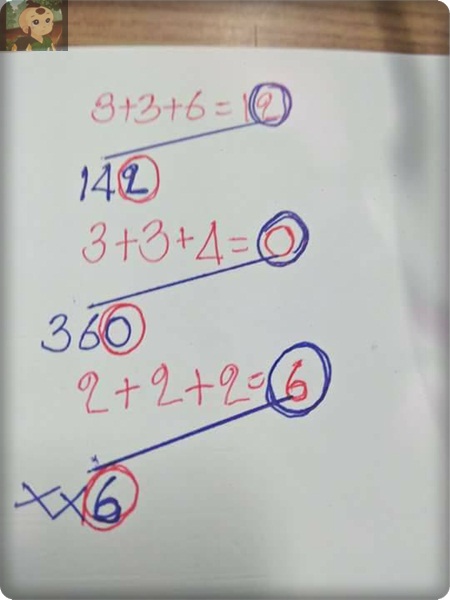 3+3+6=12
142
3+3+4=0
360
2+2+2=6
xx6